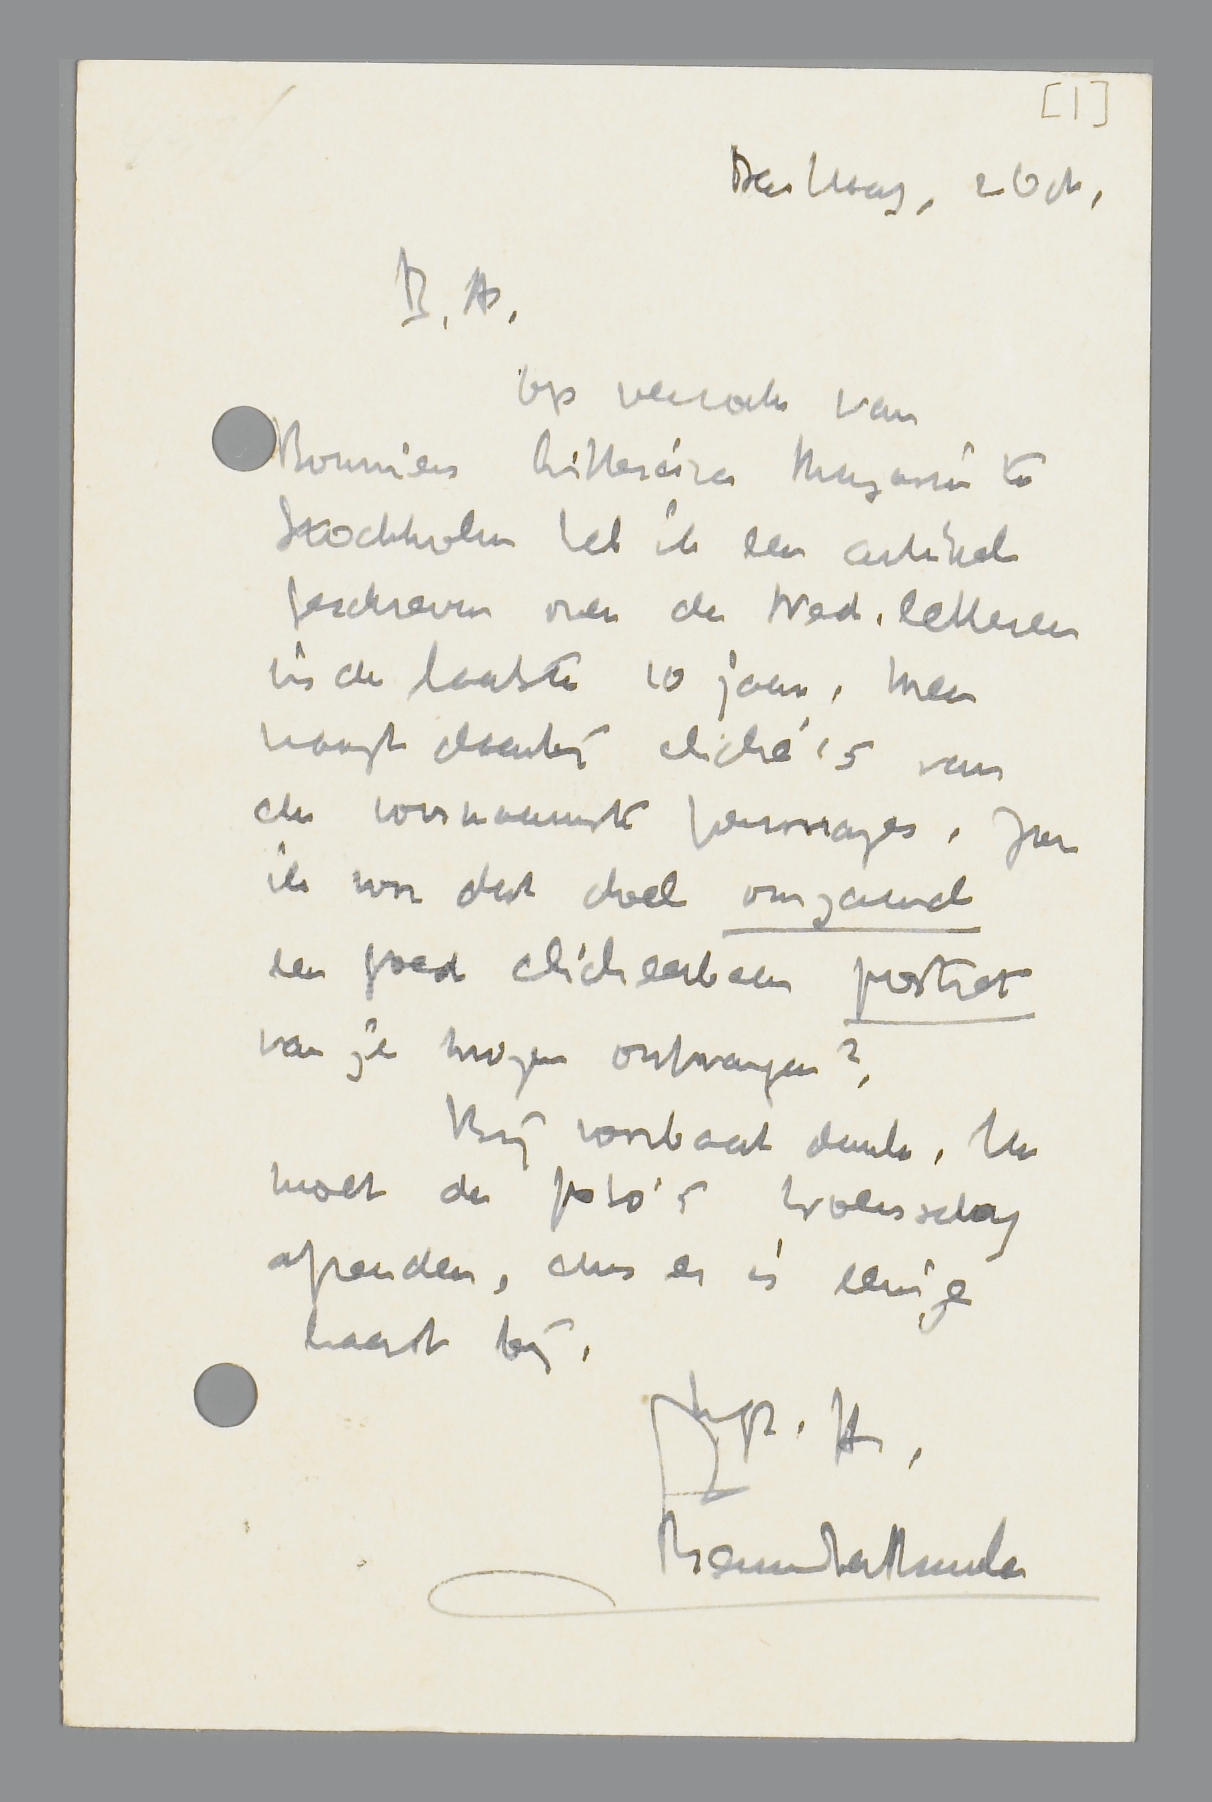 [1]
Den Haag, 2 Oct.
B. A.,
Op verzoek van
Bonniers Litterära Magasin te
Stockholm heb ik een artikel
geschreven over de Ned. letteren
in de laatste 10 jaar. Men
vraagt daarbij cliché's van
de voornaamste personages. Zou
ik voor dat doel omgaand
een goed clicheerbaar portret
van je mogen ontvangen?
Bij voorbaat dank. Ik
moet de foto's Woensdag
afzenden, dus er is eenige
haast bij.
t.
Menno ter Braak